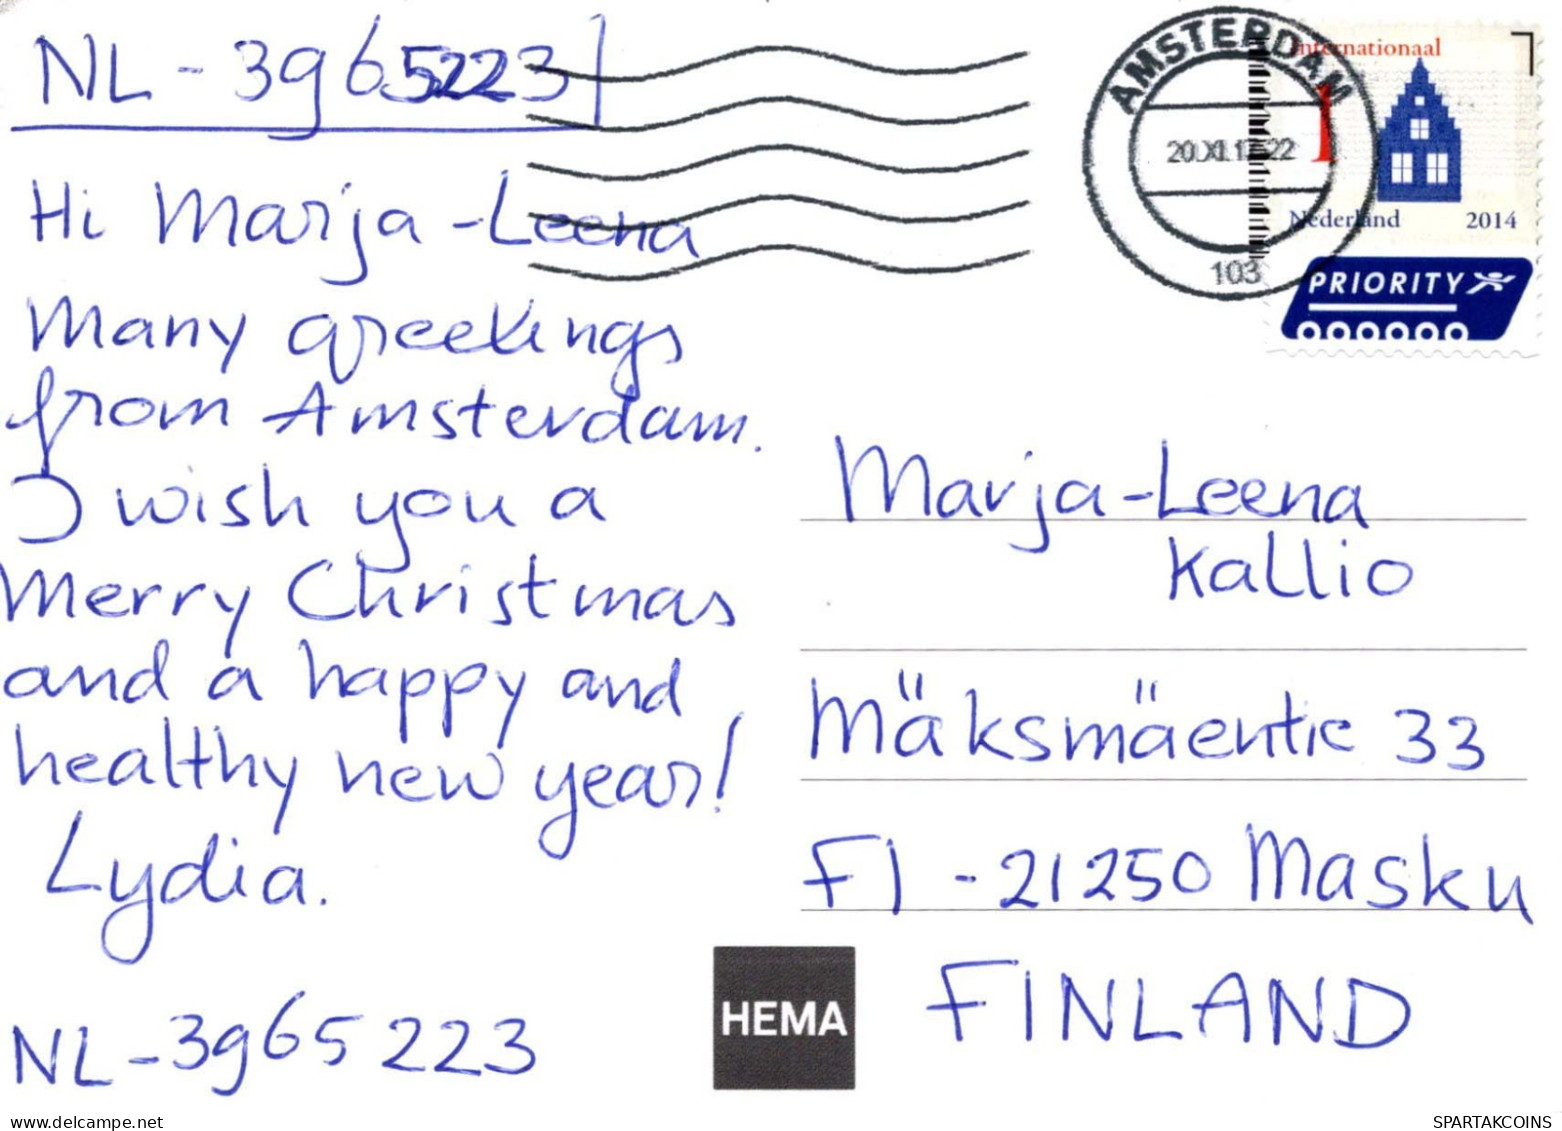 NL - 3965223
Hi Marja-Leena
Many greetings
from Amsterdam.
I wish you a
Merry Christmas
and a happy and
healthy new year!
Lydia.
NL - 3965223
AMSTERDAM
103
Internationaal
1
Nederland 2014
PRIORITY
Marja-Leena
Kallio
Mäksmäentie 33
FI - 21250 Masku
FINLAND
HEMA
delcampe.net
SPARTAKCOINS